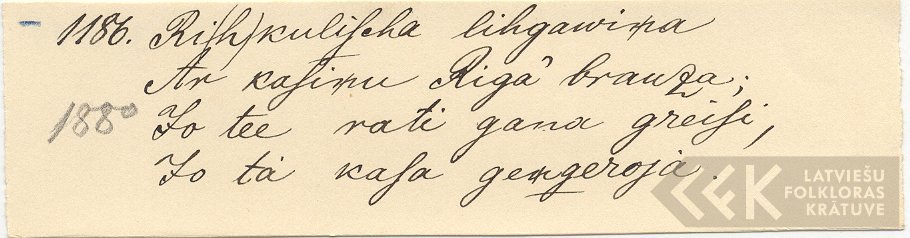 1186. Ri(h)kulischa lihgawiņa
Ar kasiņu Rigâ brauza;
1880 Jo tee rati gana greisi,
Jo tâ kasa genģeroja.
LATVIEŠU
FOLKLORAS
KRĀTUVE